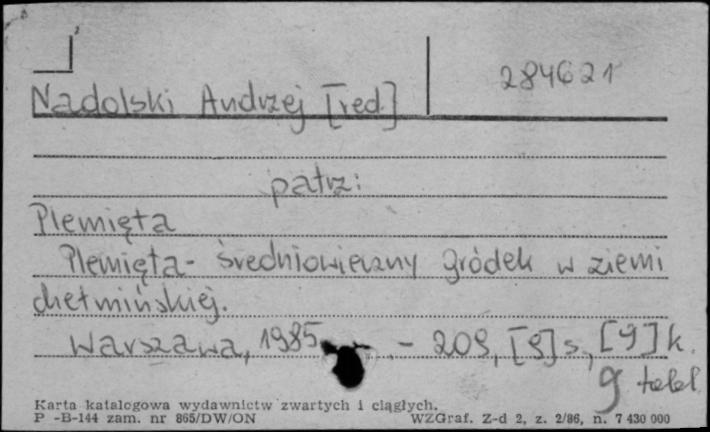 284621
Nadolski Andrzej [red.]
patrz:
Plemięta
Plemięta - średniowieczny gródek w ziemi
chełmińskiej.
Warszawa, 1985. - 209, [9] s., [9] k.
9 tabl.
Karta katalogowa wydawnictw zwartych i ciągłych.
P -B-144 zam. nr 865/DW/ON WZGraf. Z-d 2, z. 2/86, n. 7 430 000